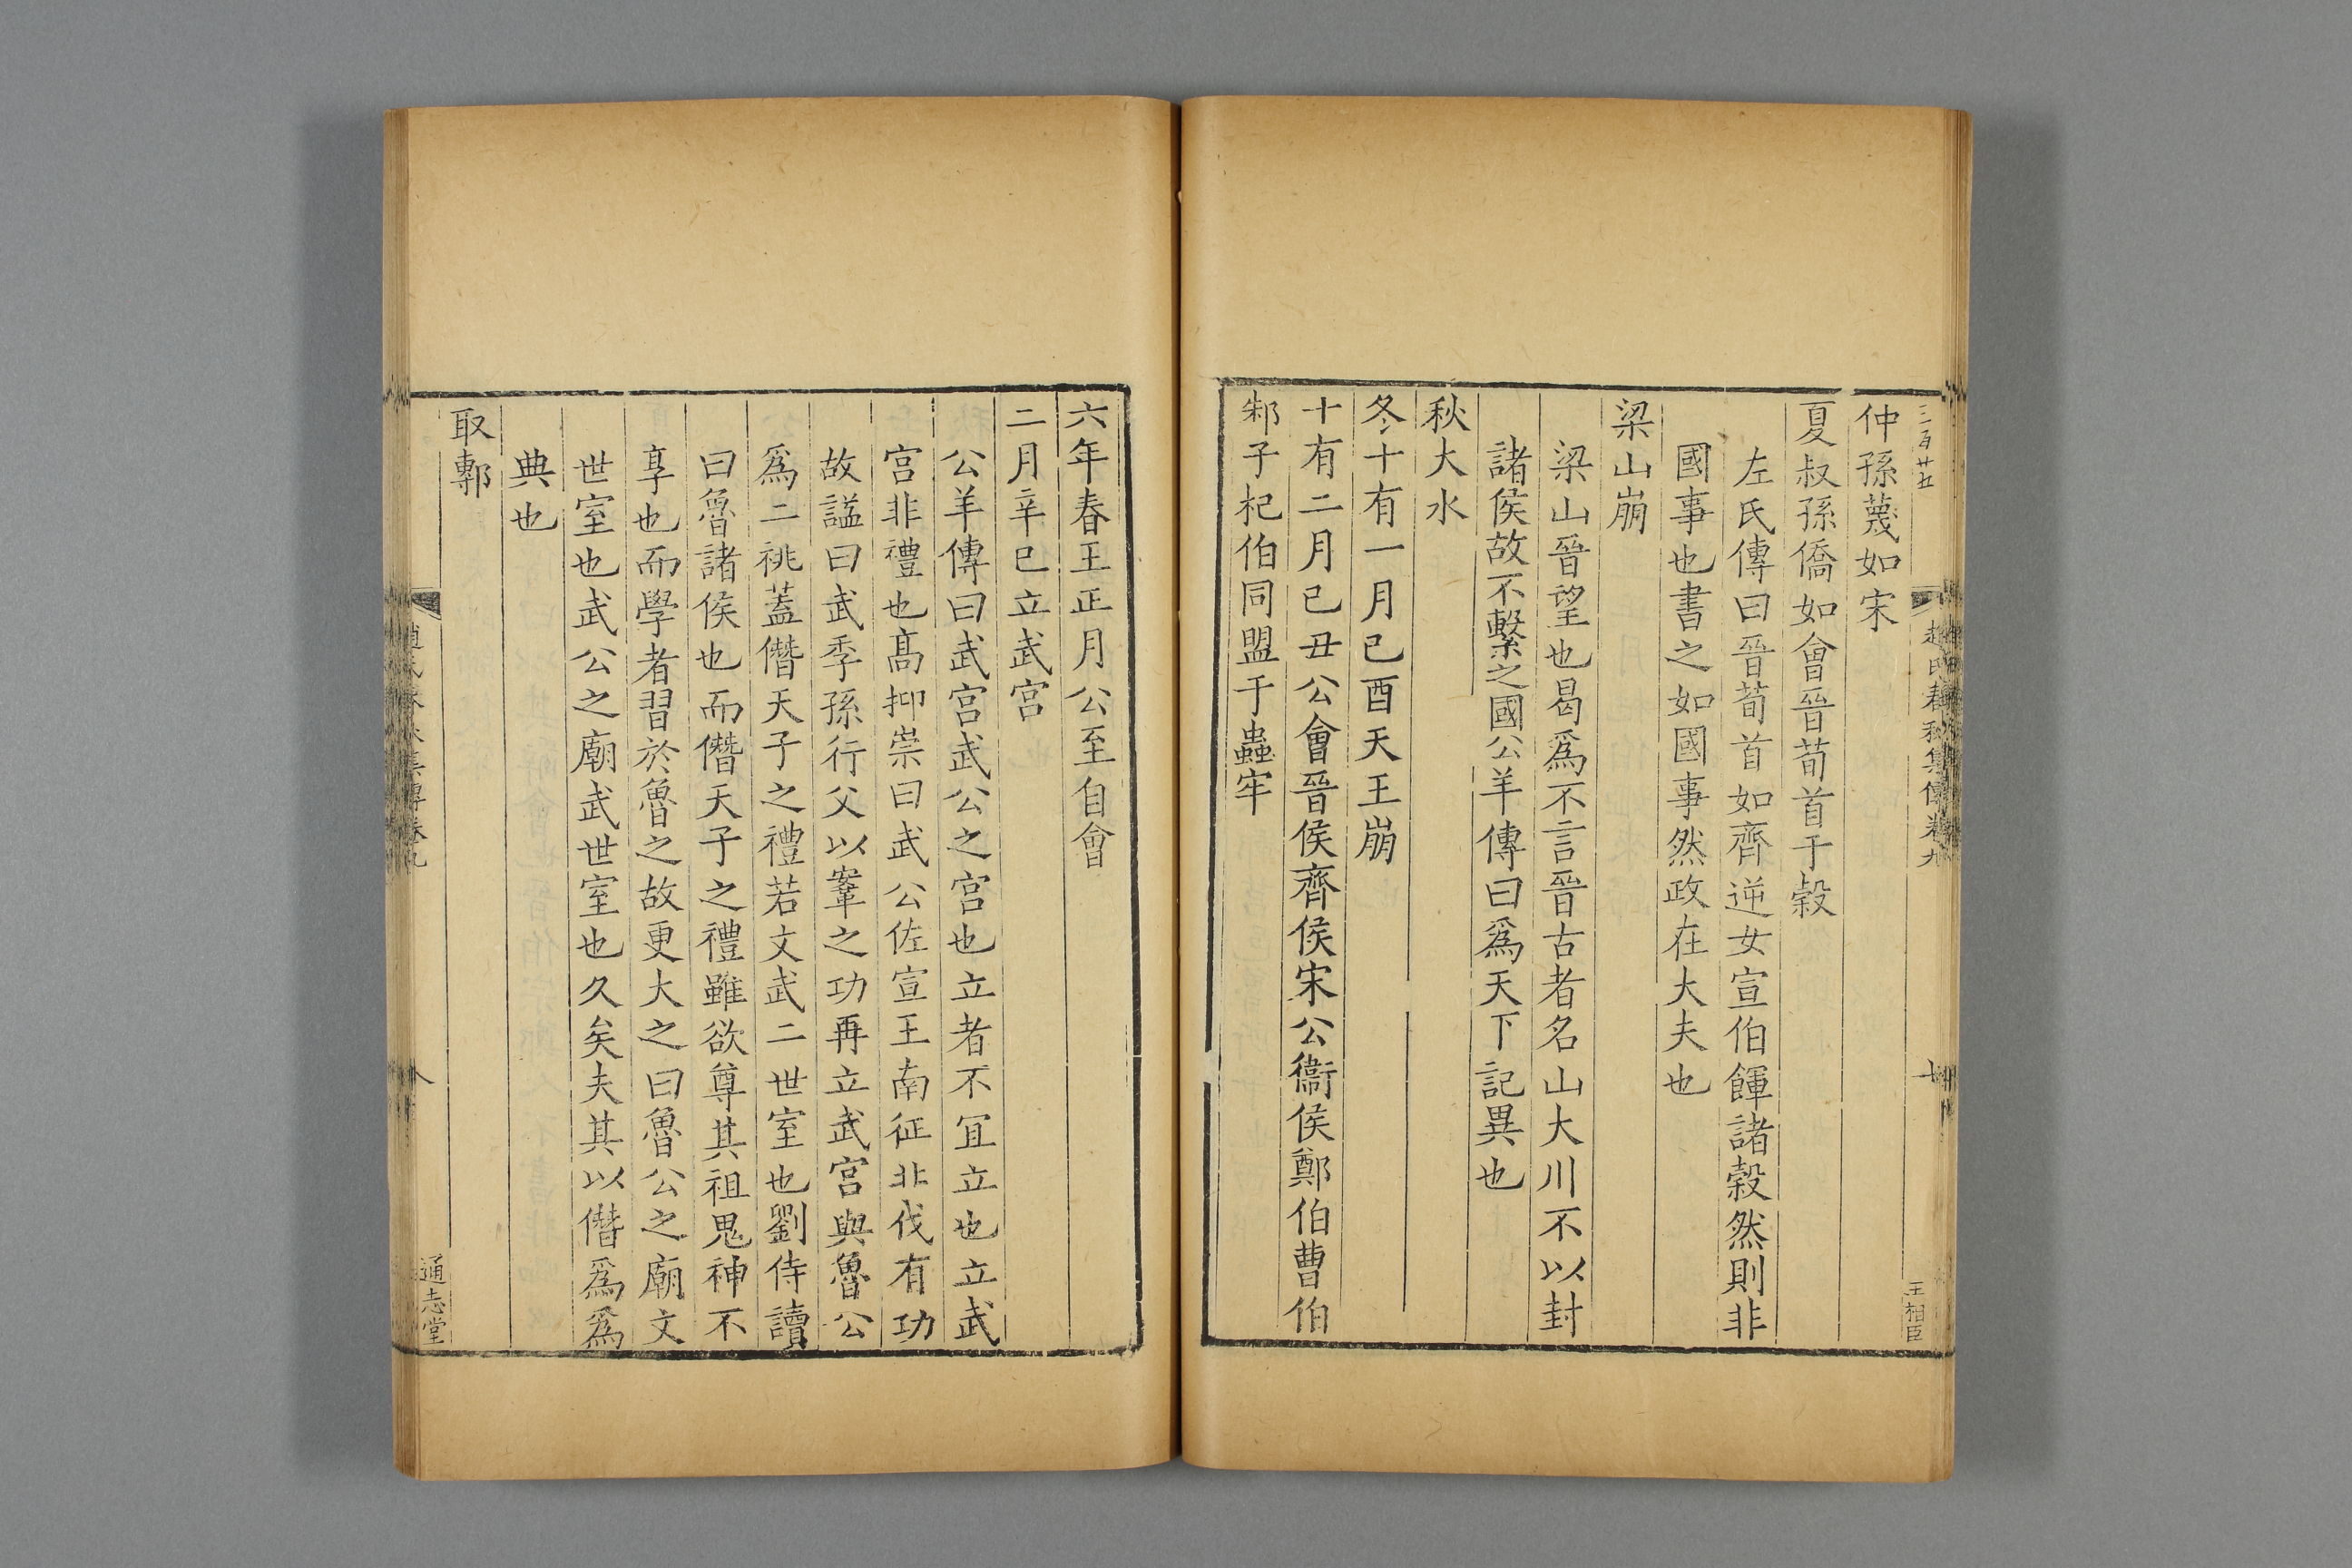 三百廿五
仲孫蔑如宋
夏叔孫僑如會晉荀首于穀
左氏傳曰晉荀首如齊逆女宣伯餫諸穀然則非
國事也書之如國事然政在大夫也
梁山崩
梁山晉望也曷爲不言晉古者名山大川不以封
諸侯故不繫之國公羊傳曰爲天下記異也
秋大水
冬十有一月己酉天王崩
十有二月己丑公會晉侯齊侯宋公衞侯鄭伯曹伯
邾子杞伯同盟于蟲牢
趙氏春秋集傳卷九
王相臣
六年春王正月公至自會
二月辛巳立武宮
公羊傳曰武宮武公之宮也立者不宜立也立武
宮非禮也髙抑崇曰武公佐宣王南征北伐有功
故謚曰武季孫行父以鞌之功再立武宮與魯公
爲二祧蓋僭天子之禮若文武二世室也劉侍讀
曰魯諸侯也而僭天子之禮雖欲尊其祖鬼神不
享也而學者習於魯之故更大之曰魯公之廟文
世室也武公之廟武世室也久矣夫其以僭爲爲
典也
取鄟
趙氏春秋集傳卷九
通志堂